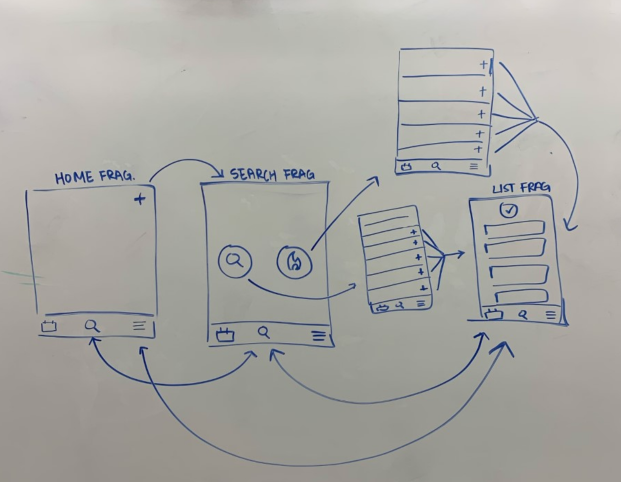 HOME FRAG.
SEARCH FRAG
LIST FRAG